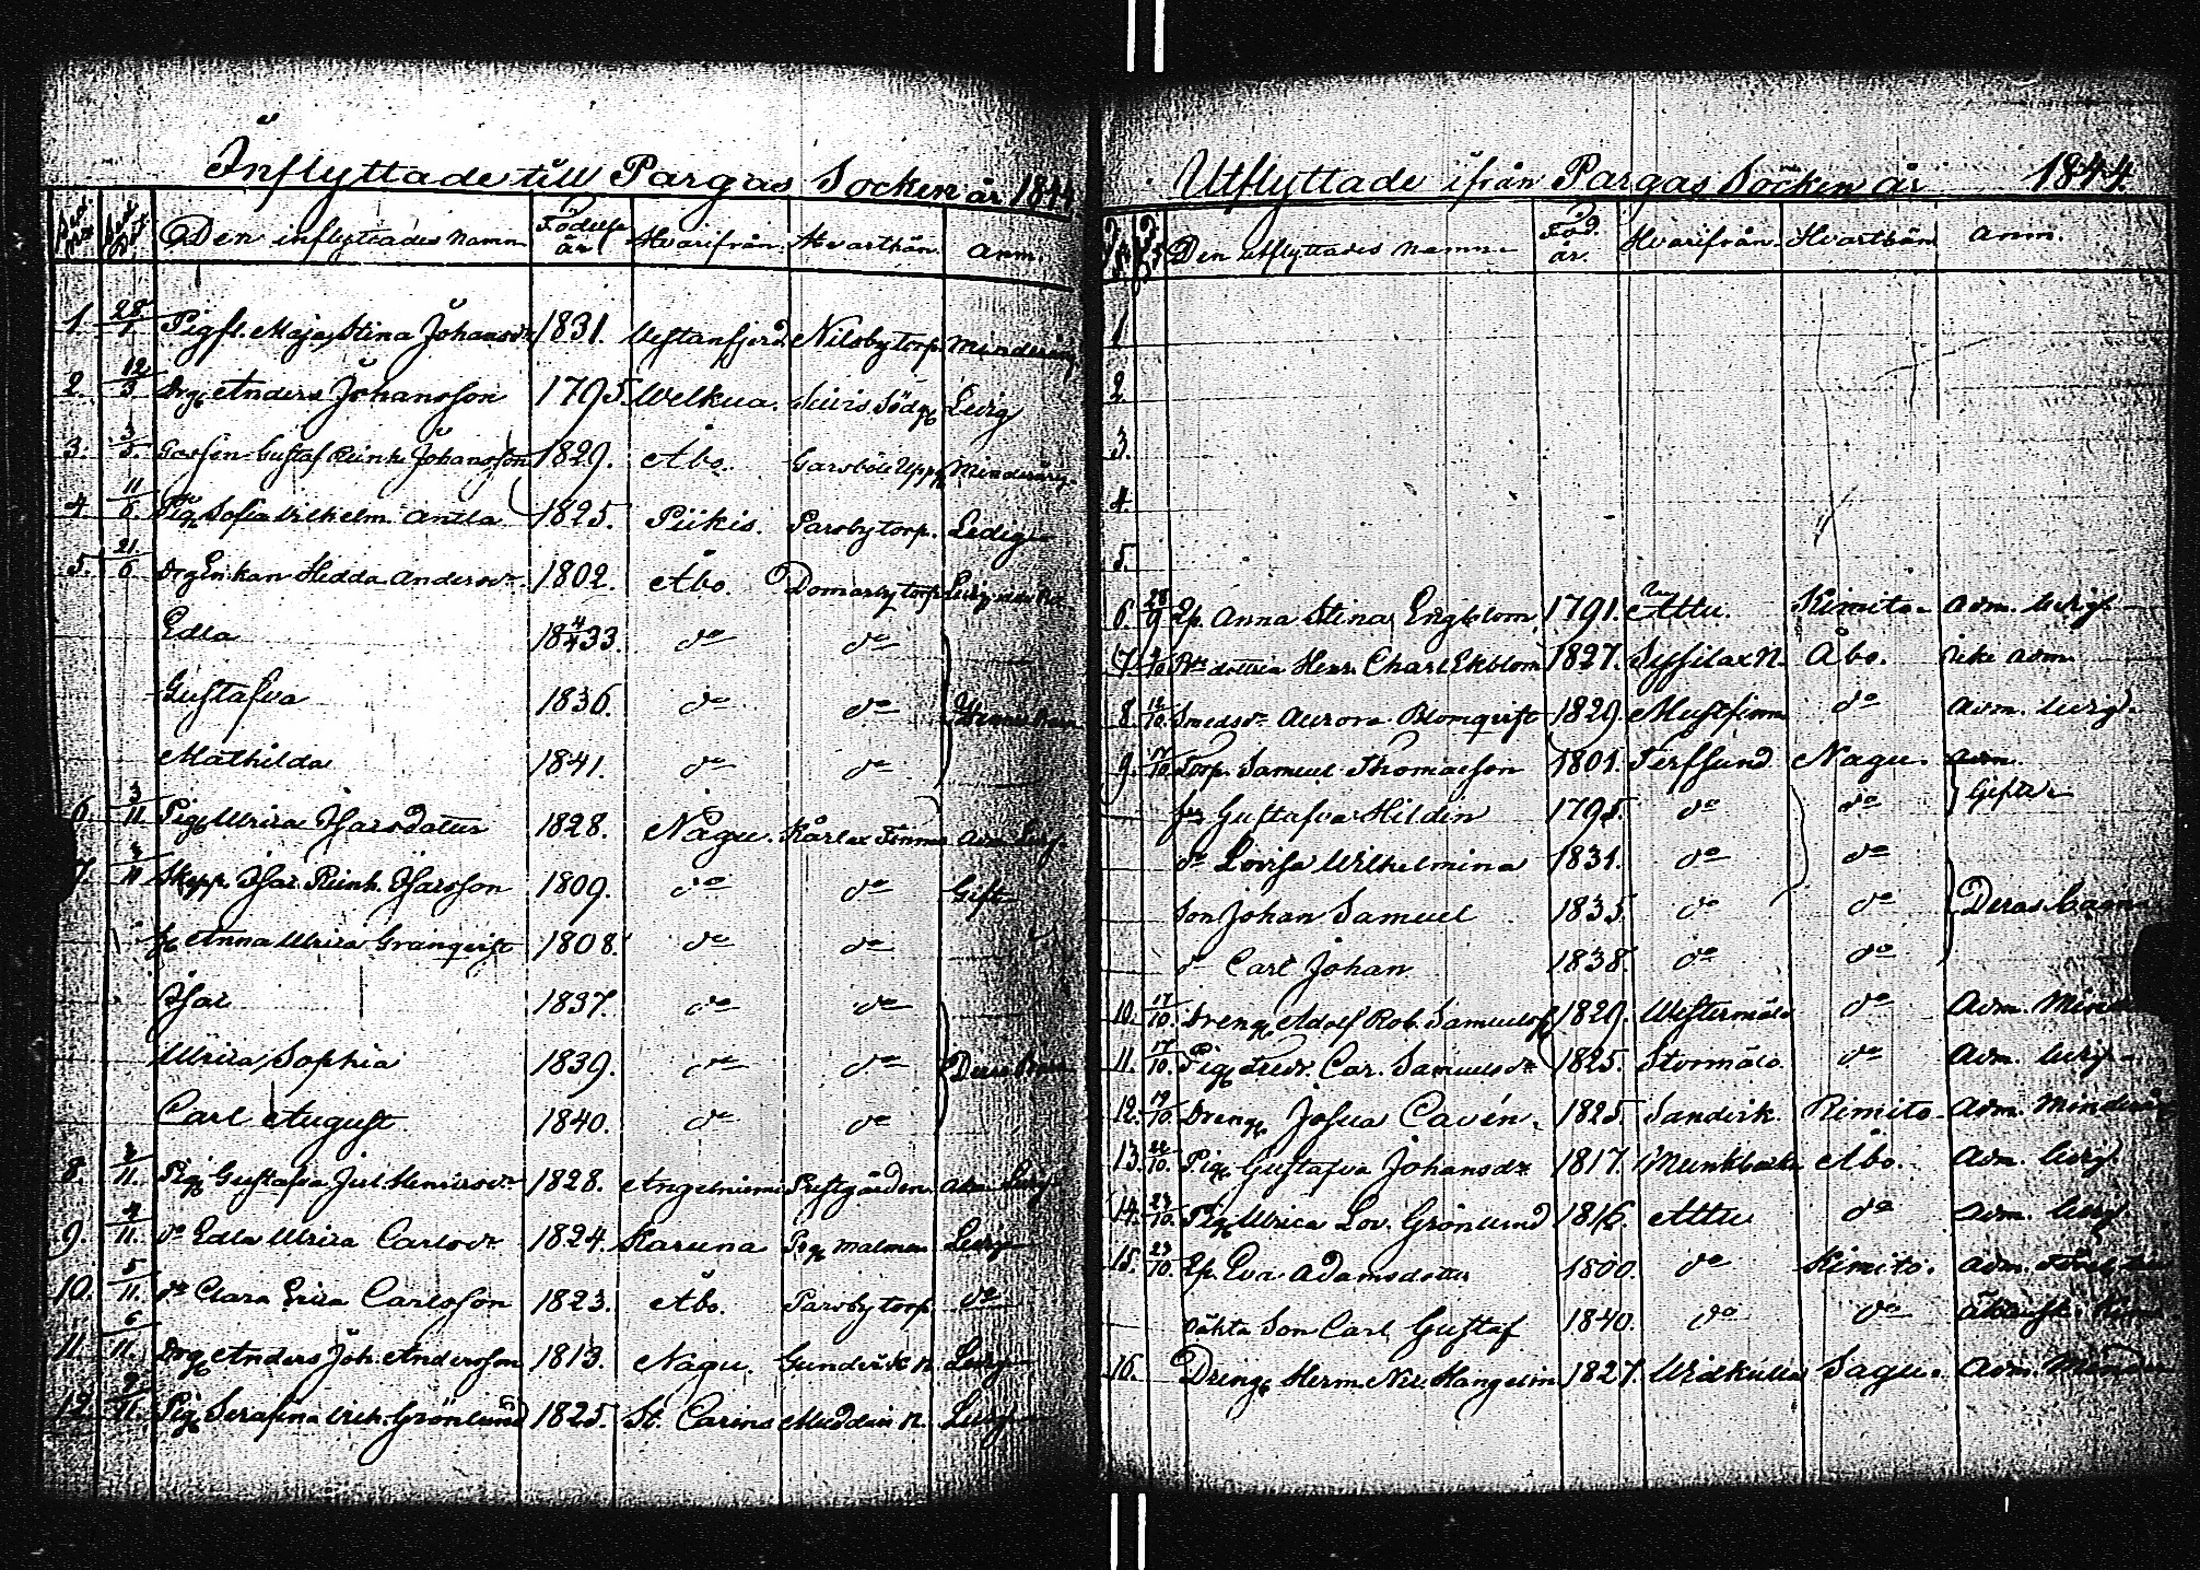 Inflyttade till Pargas Socken år 1844
Den inflyttades namn Födelse år Hvarifrån Hvarthän Anm.
1. 28/1 Pigfl. Maja Stina Johansdr 1831. Vestanfjerd Nilsby torp. Minderårig
2. 12/3 Drg Anders Johansson 1795. Welkua. Ledig
3. 3/5. Gossen Gustaf Reinh. Johansson 1829. Åbo. Garsböle Uppg Minderårig
4 11/6. Pig Sofia Vilhelm. Antla 1825. Piikis. Parsby torp. Ledig
5. 21./6. Drg Enkan Hedda Andersdr 1802. Åbo. Domarby torp Ledig
Edla 18 4/4 33. do do
Gustafva 1836. do do
Mathilda 1841. do do
6. 3/11 Pig Ulrica Isarsdotter 1828. Nagu. Kårlax
7. 3/11 Skepp. Isac. Reinh. Isacsson 1809. do do Gift
h. Anna Ulrica Granqvist 1808. do do
Isac 1837. do do
Ulrica Sophia 1839. do do Deras Barn
Carl August 1840. do do
8. 3/11. Pig Gustafva Jul. Henricsdr 1828. Angelniemi Prestgården
9. 4/11. do Edla Ulrica Carlsdr 1824. Karuna Prg Malmen Ledig
10. 5/11. do Clara Erica Carlsson 1823. Åbo. Parsby torp. do
11. 6/11. Drg Anders Joh. Andersson 1813. Nagu. Gundvik N. Ledig
12. 9/11. Pig Serafina Vilh. Grönlund 1825. St. Carins Muddais N. Ledig
Utflyttade ifrån Pargas Socken år 1844.
Den utflyttades namn Föd. år. Hvarifrån. Hvarthän Anm.
1
2
3.
4.
5.
6. 28/9 Ep. Anna Stina Engblom 1791. Attu. Kimito Adm. ledig
7. 9/10. dottren Henr. Charl Ekblom 1827. Sysilax N. Åbo. icke adm
8. 12/10. Smedsdr Aurora Blomqvist 1829. Mustfinn do Adm. ledig.
9. 17/10. Torp. Samuel Thomasson 1801. Terfsund Nagu. Adm.
h. Gustafva Hildin 1795. do do Gifta
dr Lovisa Wilhelmina 1831. do do
Son Johan Samuel 1835 do do Deras barn
do Carl Johan 1838. do do
10. 17/10. Dreng Adolf Rob. Samuelss 1829. Westermälo do Adm. Mind
11. 17/10. Pig Fredr. Car. Samuelsdr 1825. Stormälo. do Adm. ledig
12. 19/10. Dreng Josua Cavén. 1825. Sandvik. Kimito. Adm. Minderårig
13. 22/10. Pig Gustafva Johansdr 1817. Munkbacka Åbo. Adm. ledig.
14. 23/10. Pig Ulrica Lov. Grönlund 1816. Attu do Adm. ledig.
15. 23/10. Ep. Eva Adamsdotter 1800. do Kimito. Adm.
oäkta Son Carl Gustaf 1840. do do
16. Dreng Herm. Nil. Hangelin 1827. Widkulla Sagu. Adm. Minder